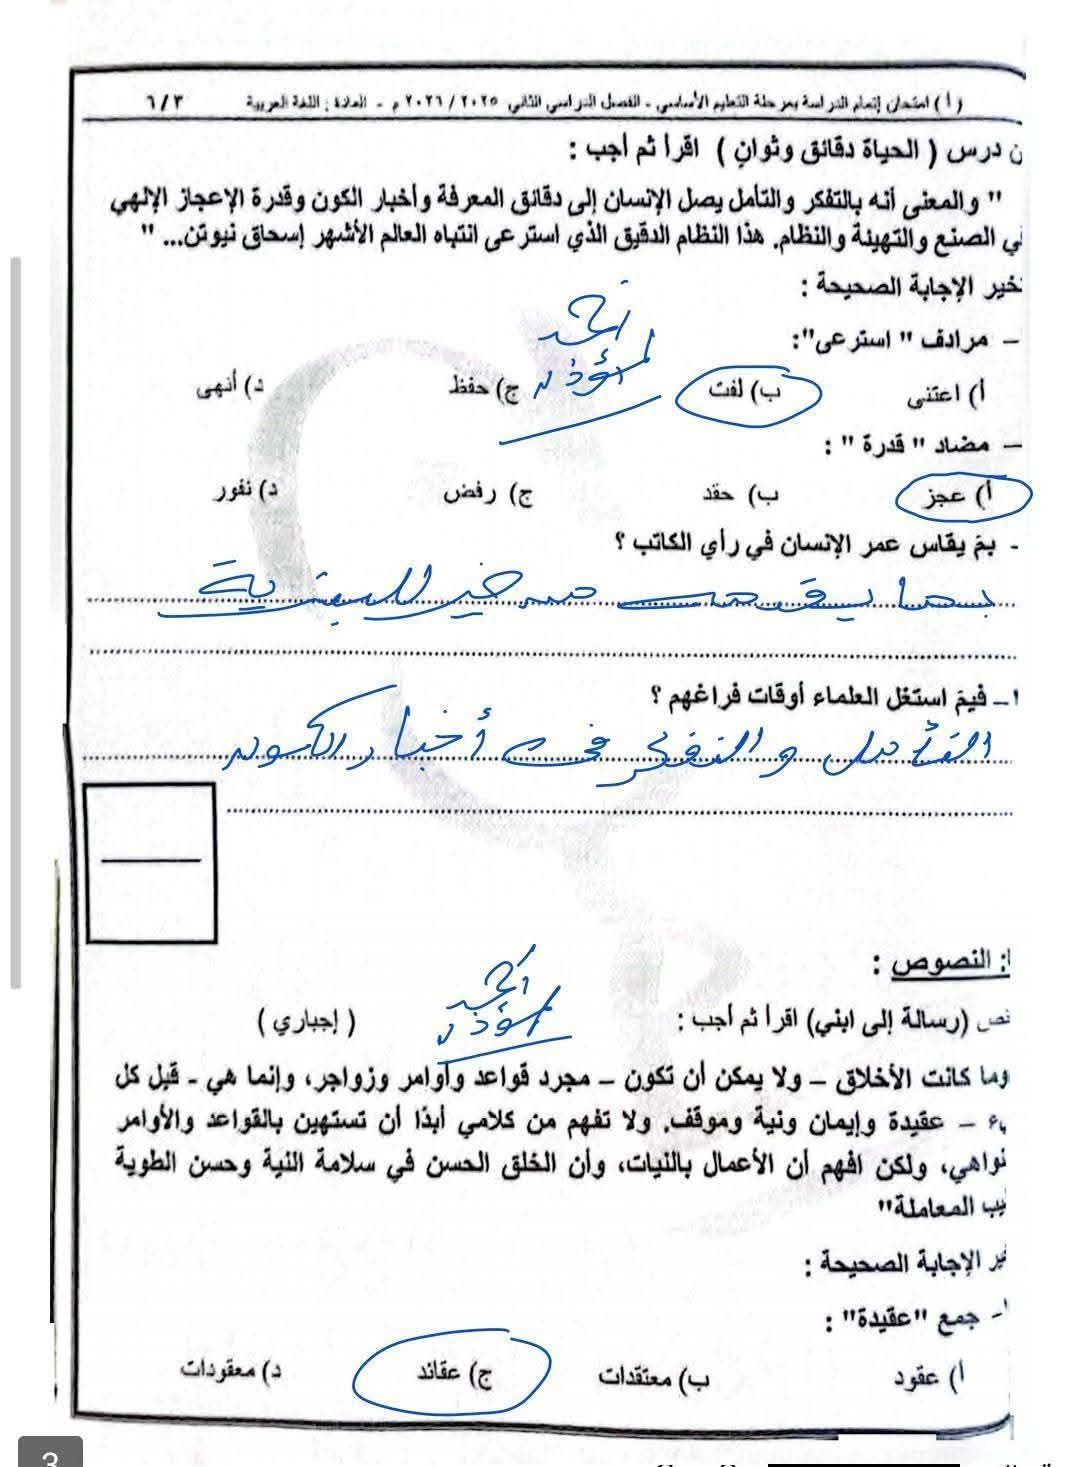 ( أ ) امتحان إتمام الدراسة بمرحلة التعليم الأساسي - الفصل الدراسي الثاني ٢٠٢٥ / ٢٠٢٦ م - المادة : اللغة العربية ٦/٣
ن درس ( الحياة دقائق وثوانٍ ) اقرأ ثم أجب :
" والمعنى أنه بالتفكر والتأمل يصل الإنسان إلى دقائق المعرفة وأخبار الكون وقدرة الإعجاز الإلهي
في الصنع والتهيئة والنظام. هذا النظام الدقيق الذي استرعى انتباه العالم الأشهر إسحاق نيوتن... "
تخير الإجابة الصحيحة :
– مرادف " استرعى":
أ) اعتنى ب) لفت ج) حفظ د) أنهى
– مضاد " قدرة " :
أ) عجز ب) حقد ج) رفض د) نفور
- بمَ يقاس عمر الإنسان في رأي الكاتب ؟
بما يقدمه من خير للبشرية
١ـ فيمَ استغل العلماء أوقات فراغهم ؟
التأمل والتفكر في أخبار الكون
: النصوص :
نص (رسالة إلى ابني) اقرأ ثم أجب : ( إجباري )
وما كانت الأخلاق – ولا يمكن أن تكون – مجرد قواعد وأوامر وزواجر، وإنما هي - قبل كل
يء – عقيدة وإيمان ونية وموقف. ولا تفهم من كلامي أبدًا أن تستهين بالقواعد والأوامر
نواهي، ولكن افهم أن الأعمال بالنيات، وأن الخلق الحسن في سلامة النية وحسن الطوية
يب المعاملة"
ير الإجابة الصحيحة :
١- جمع "عقيدة" :
أ) عقود ب) معتقدات ج) عقائد د) معقودات
3